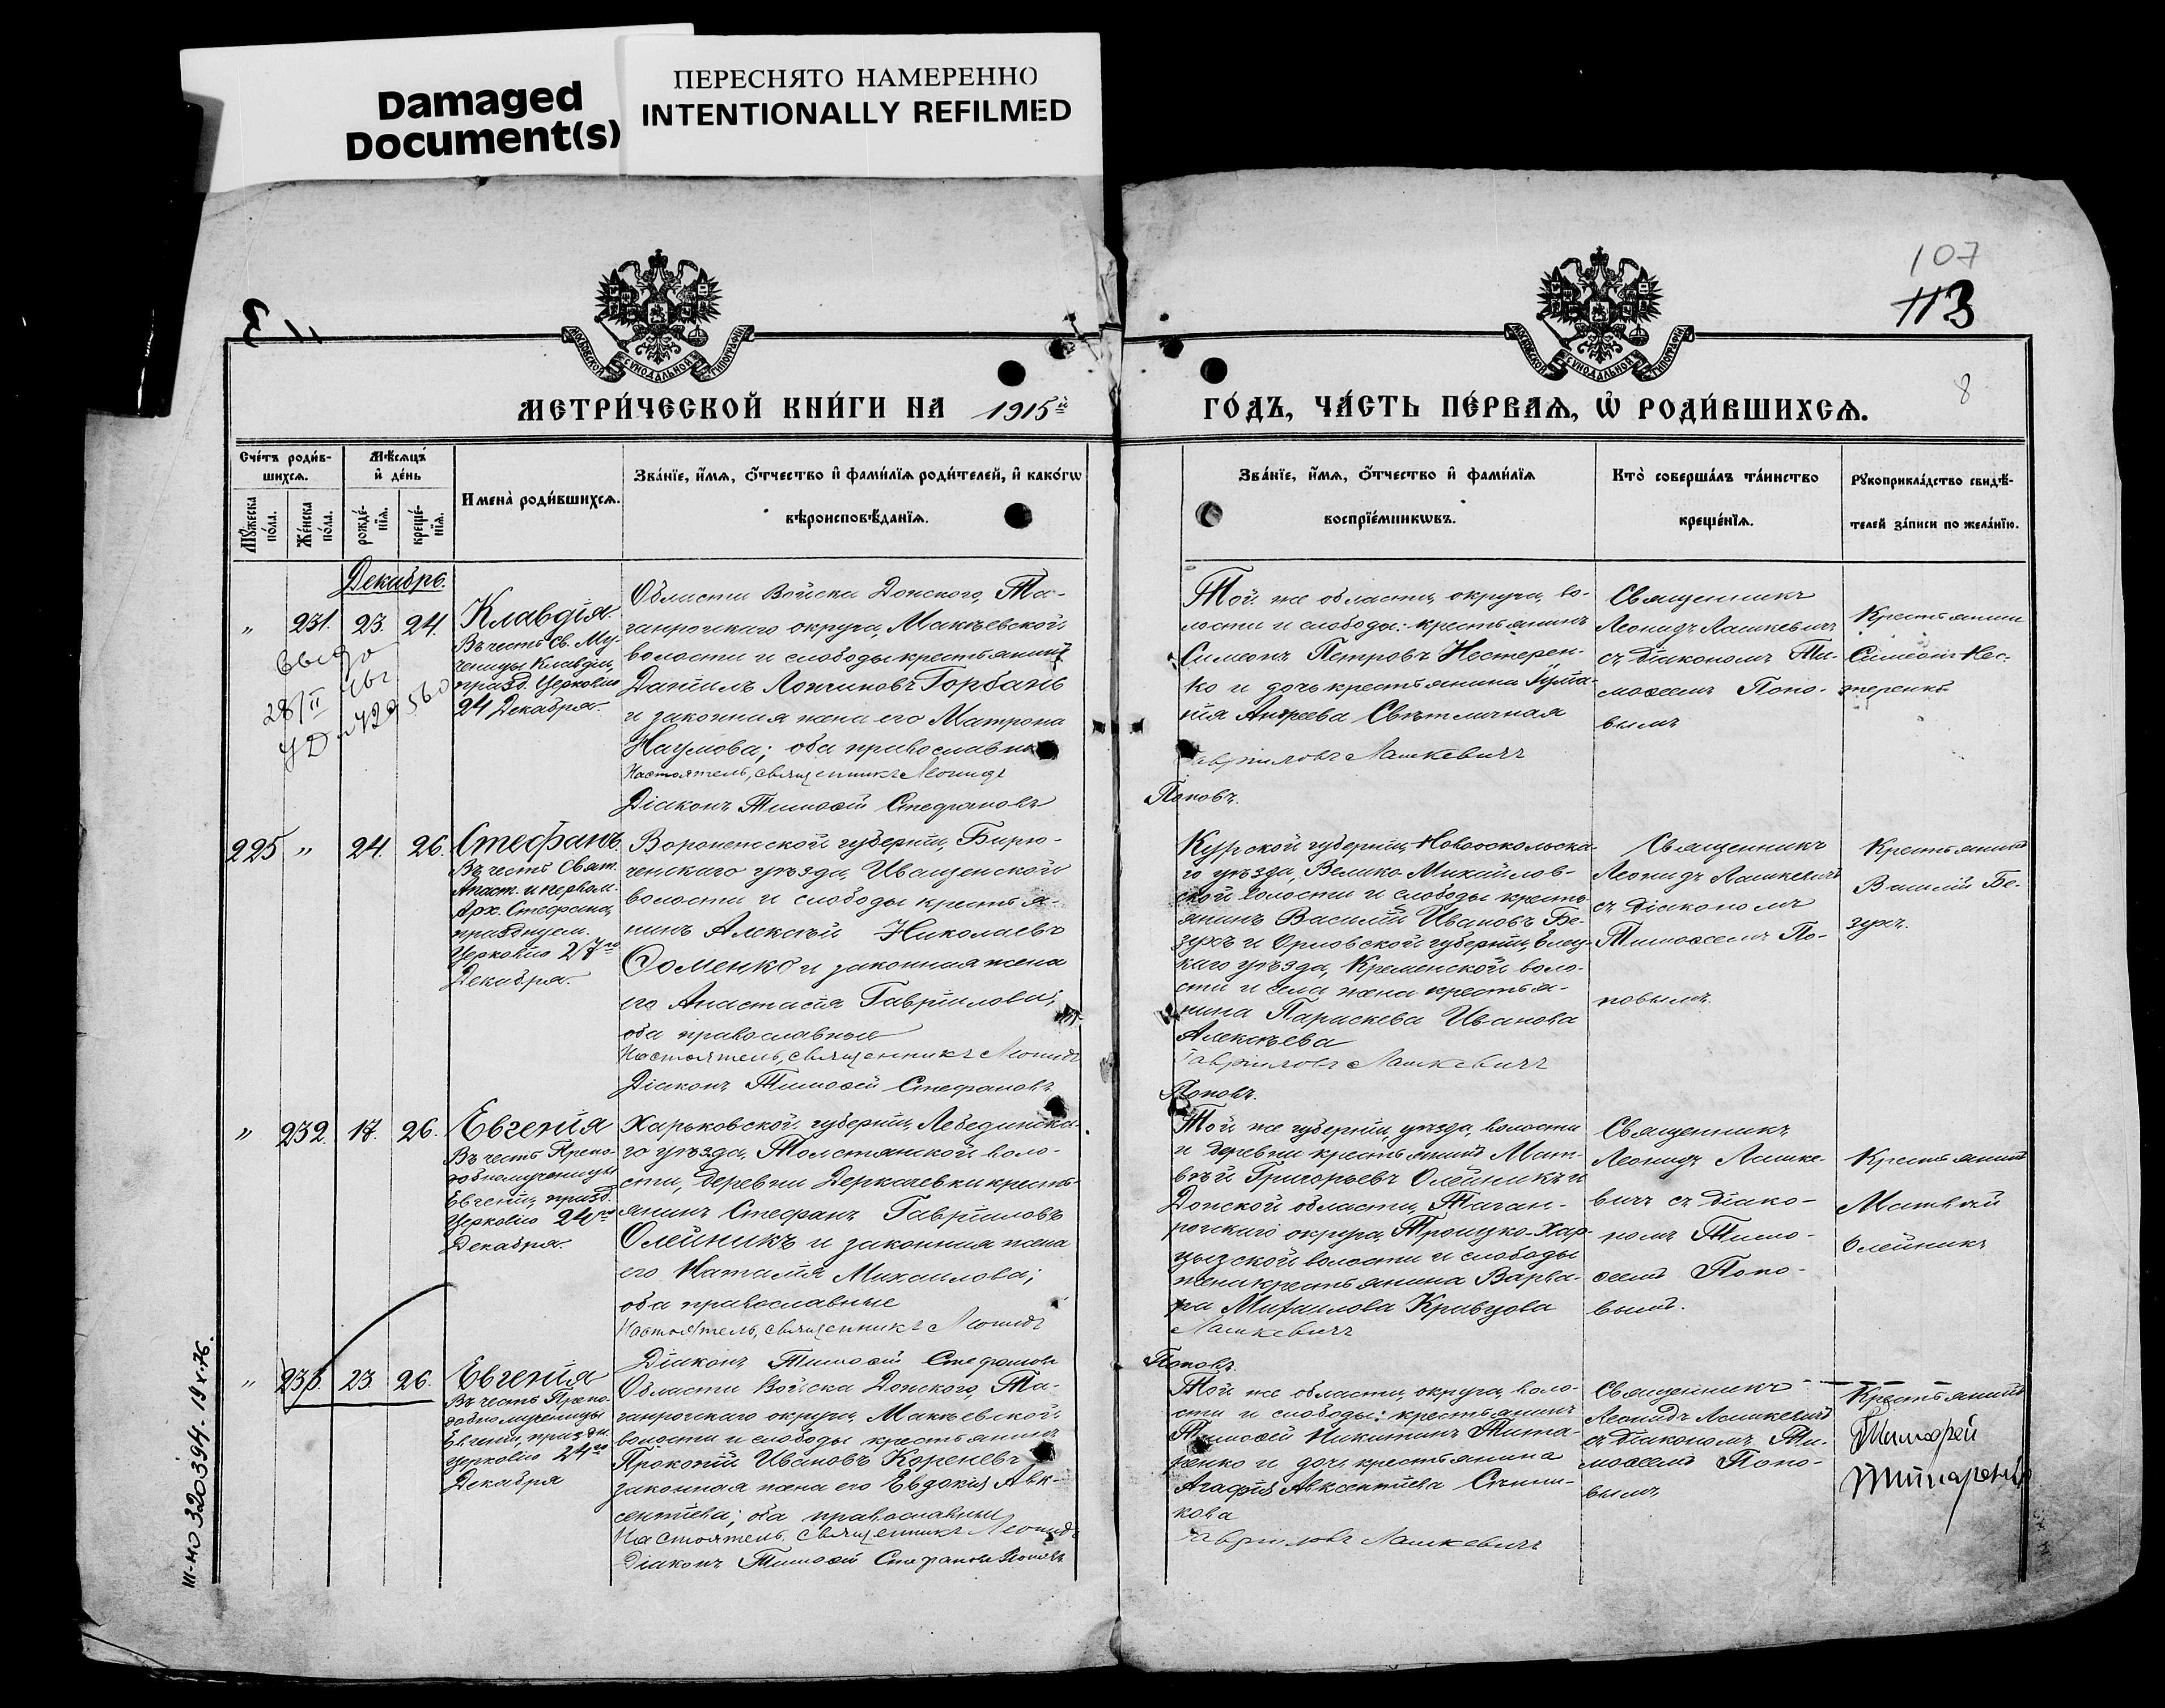 Damaged
Document(s)
ПЕРЕСНЯТО НАМЕРЕННО
INTENTIONALLY REFILMED
107
113
8
МОСКОВСКОЙ СѴНОДАЛЬНОЙ ТИПОГРАФІИ
МОСКОВСКОЙ СѴНОДАЛЬНОЙ ТИПОГРАФІИ
МЕТРИ́ЧЕСКОЙ КНИ́ГИ НА 1915й
ГО́ДЪ, ЧА́СТЬ ПЕ́РВАѦ, Ѡ҆ РОДИ́ВШИХСѦ.
Сче́тъ роди́в-
шихсѧ.
Мѣ́сѧцъ
и҆ де́нь
Мꙋ́жеска
по́ла.
Же́нска
по́ла.
рожде́-
нїѧ.
креще́-
нїѧ.
Имена̀ роди́вшихсѧ.
Зва́нїе, и҆́мѧ, ѻ҆́тчество и҆ фами́лїѧ роди́телей, и҆ како́гѡ
вѣроисповѣ́данїѧ.
Зва́нїе, и҆́мѧ, ѻ҆́тчество и҆ фами́лїѧ
воспрїе́мникѡвъ.
Кто̀ соверша́лъ та́инство
креще́нїѧ.
Рꙋкоприкла́дство свидѣ́-
телей за́писи по жела́нїю.
Декабрь.
" 231. 23. 24.
Клавдія
Въ честь Св. Му-
ченицы Клавдіи,
празд. Церковію
24 Декабря.
28/II
Области Войска Донского, Та-
ганрогскаго округа, Макѣевской
волости и слободы крестьянинъ
Даніилъ Логиновъ Горбань
и законная жена его Матрона
Наумова; оба православные
Настоятель, священникъ Леонидъ
Діаконъ Тимофей Стефановъ
Той же области, округа, во-
лости и слободы: крестьянинъ
Симеонъ Петровъ Нестерен-
ко и дочь крестьянина
Андреева Свѣтличная
Гавриловъ Лашкевичъ
Поповъ.
Священникъ
Леонидъ Лашкевичъ
съ діакономъ Ти-
мофеемъ Попо-
вымъ
Крестьянинъ
Симеонъ Нес-
теренко
225 " 24. 26.
Стефанъ
Въ честь Свят.
Апост. и первом.
Арх. Стефана,
празднуем.
Церковію 27го
Декабря.
Воронежской губерніи, Бирю-
ченскаго уѣзда, Иващенской
волости и слободы крестья-
нинъ Алексѣй Николаевъ
Ѳоменко и законная жена
его Анастасія Гавріилова;
оба православные
Настоятель, священникъ Леонидъ
Діаконъ Тимофей Стефановъ
Курской губерніи, Новооскольска-
го уѣзда, Велико-Михайлов-
ской волости и слободы кресть-
янинъ Василій Ивановъ Бе-
зухъ и Орловской губерніи, Елец-
каго уѣзда, Кременской воло-
сти и села жена крестья-
нина Параскева Иванова
Алексѣева
Гавриловъ Лашкевичъ
Поповъ.
Священникъ
Леонидъ Лашкевичъ
съ діакономъ
Тимофеемъ По-
повымъ.
Крестьянинъ
Василій Бе-
зухъ.
" 232. 17. 26.
Евгенія
Въ честь Препо-
добномученицы
Евгеніи, празд.
Церковію 24го
Декабря.
Харьковской губерніи, Лебединска-
го уѣзда, Толстянской воло-
сти, деревни Деркачевки кресть-
янинъ Стефанъ Гавріиловъ
Олейникъ и законная жена
его Наталія Михаилова;
оба православные
Настоятель, священникъ Леонидъ
Діаконъ Тимофей Стефановъ
Той же губерніи, уѣзда, волости
и деревни крестьянинъ Мат-
вѣй Григорьевъ Олейникъ и
Донской области, Таган-
рогскаго округа, Троицко-Хар-
цызской волости и слободы
жена крестьянина Варва-
ра Михаилова Кривцова
Лашкевичъ
Поповъ.
Священникъ
Леонидъ Лашке-
вичъ съ діако-
номъ Тимо-
феемъ Попо-
вымъ.
Крестьянинъ
Матвѣй
Олейникъ
" 233. 23. 26.
Евгенія
Въ честь Препо-
добномученицы
Евгеніи, праздн.
Церковію 24го
Декабря
Области Войска Донского, Та-
ганрогскаго округа, Макѣевской
волости и слободы крестьянинъ
Прокопій Ивановъ Кореневъ и
законная жена его Евдокія Авк-
сентіева; оба православные
Настоятель, священникъ Леонидъ
Діаконъ Тимофей Стефановъ Поповъ
Той же области, округа, воло-
сти и слободы: крестьянинъ
Тимофей Никитинъ Тита-
ренко и дочь крестьянина
Агафія Авксентіева Сѣнни-
кова
Гавриловъ Лашкевичъ
Священникъ
Леонидъ Лашкевичъ
съ діакономъ Ти-
мофеемъ Попо-
вымъ
Крестьянинъ
Тимофей
Титаренко
III-НО 320394. 19 V-76.